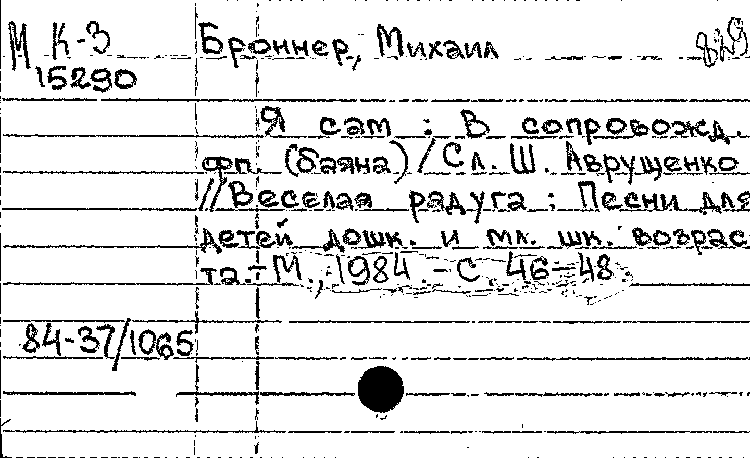 М К-3 Броннер, Михаил
15290
Я сам : В сопровожд.
фп. (баяна) / Сл. Ш. Аврущенко
// Веселая радуга : Песни для
детей дошк. и мл. шк. возрас-
та. – М., 1984. – С. 46–48.
84-37/1065